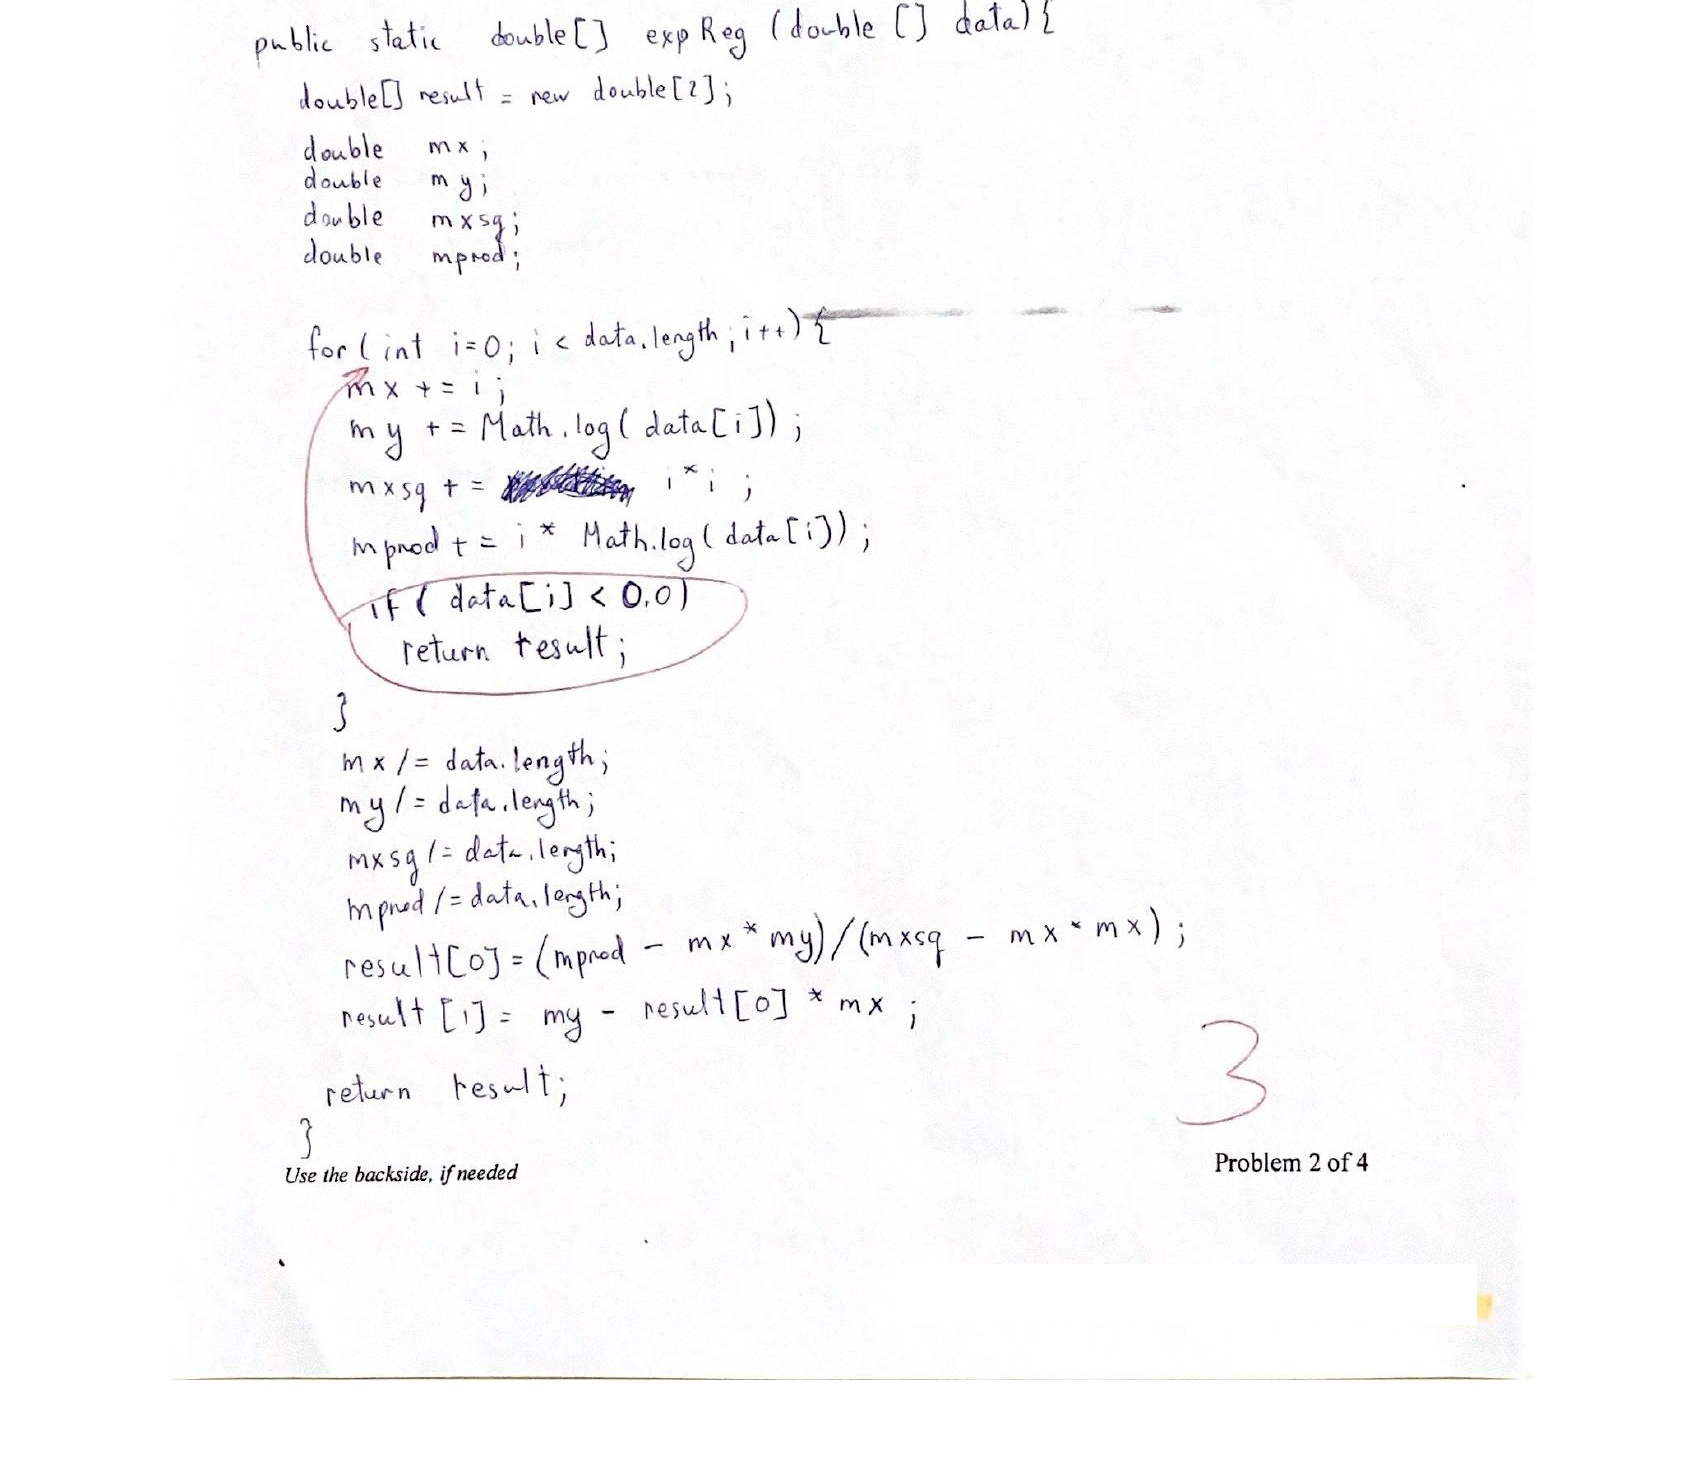 public static double[] expReg (double [] data) {
double[] result = new double[2];
double mx;
double my;
double mxsq;
double mprod;
for (int i=0; i < data.length; i++) {
mx += i;
my += Math.log( data[i]);
mxsq += i*i;
mprod += i * Math.log( data[i]);
if ( data[i] < 0.0)
return result;
}
mx /= data.length;
my /= data.length;
mxsq /= data.length;
mprod /= data.length;
result[0] = (mprod - mx * my)/(mxsq - mx * mx);
result [1] = my - result[0] * mx ;
return result;
3
}
Use the backside, if needed
Problem 2 of 4